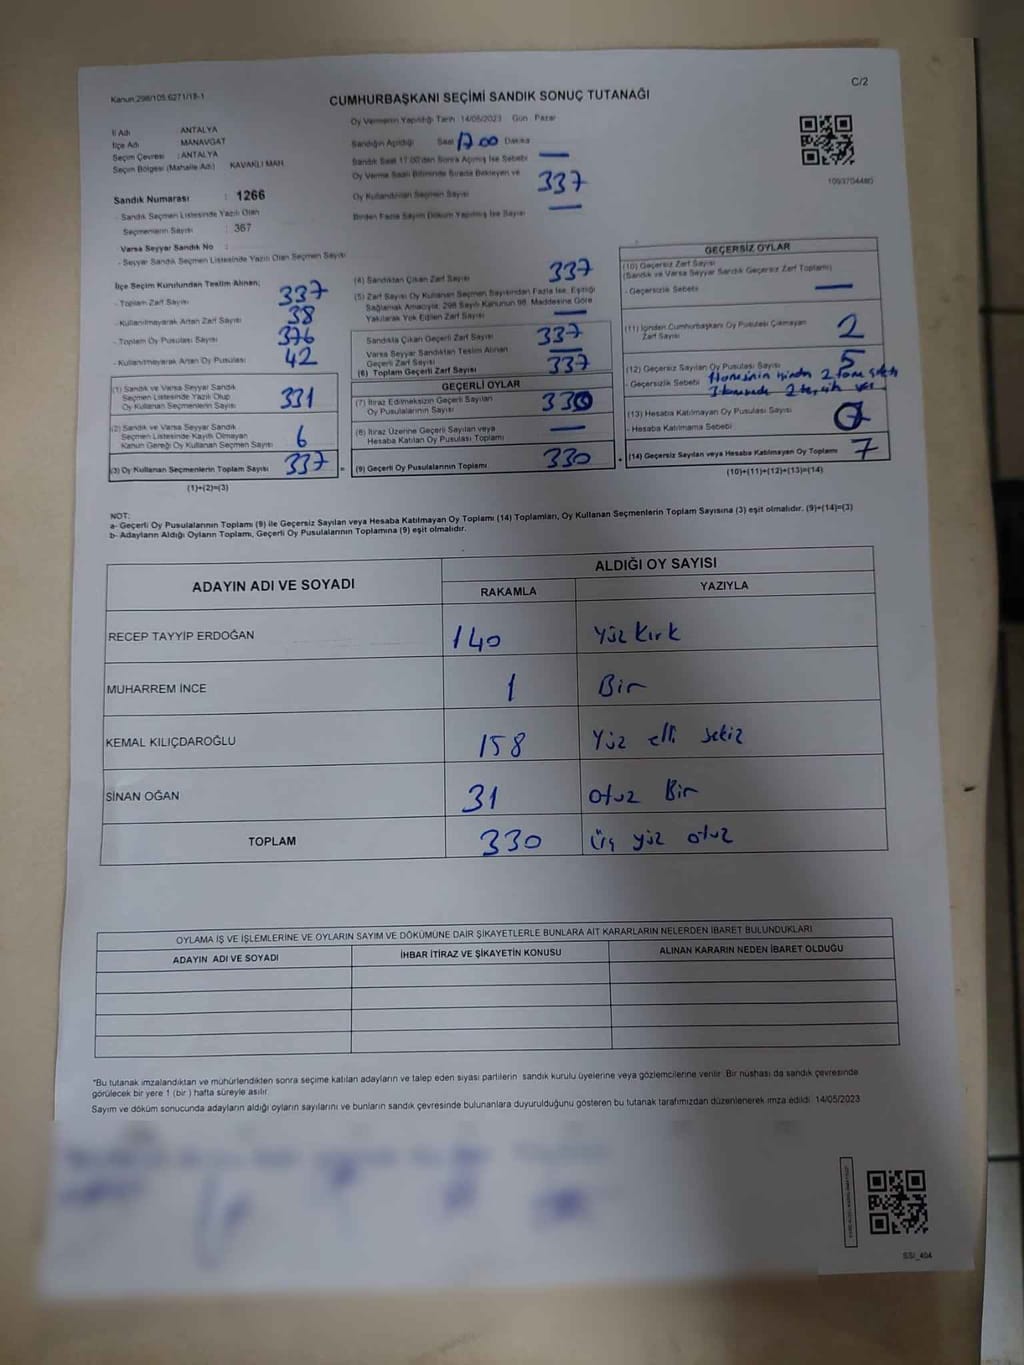 Kanun:298/105.6271/18-1
C/2
CUMHURBAŞKANI SEÇİMİ SANDIK SONUÇ TUTANAĞI
İl Adı : ANTALYA
İlçe Adı : MANAVGAT
Seçim Çevresi : ANTALYA
Seçim Bölgesi (Mahalle Adı) : KAVAKLI MAH
Sandık Numarası : 1266
- Sandık Seçmen Listesinde Yazılı Olan
Seçmenlerin Sayısı : 367
Varsa Seyyar Sandık No :
- Seyyar Sandık Seçmen Listesinde Yazılı Olan Seçmen Sayısı
Oy Vermenin Yapıldığı Tarih :14/05/2023 Gün : Pazar
Sandığın Açıldığı Saat 17 00 Dakika
Sandık Saat 17:00'den Sonra Açılmış İse Sebebi —
Oy Verme Saati Bitiminde Sırada Bekleyen ve
Oy Kullandırılan Seçmen Sayısı 337
Birden Fazla Sayım Döküm Yapılmış İse Sayısı —
1093704480
İlçe Seçim Kurulundan Teslim Alınan;
- Toplam Zarf Sayısı 337
- Kullanılmayarak Artan Zarf Sayısı 38
- Toplam Oy Pusulası Sayısı 376
- Kullanılmayarak Artan Oy Pusulası 42
(1) Sandık ve Varsa Seyyar Sandık
Seçmen Listesinde Yazılı Olup
Oy Kullanan Seçmenlerin Sayısı 331
(2) Sandık ve Varsa Seyyar Sandık
Seçmen Listesinde Kayıtlı Olmayan
Kanun Gereği Oy Kullanan Seçmen Sayısı 6
(3) Oy Kullanan Seçmenlerin Toplam Sayısı 337 =
(1)+(2)=(3)
(4) Sandıktan Çıkan Zarf Sayısı 337
(5) Zarf Sayısı Oy Kullanan Seçmen Sayısından Fazla İse, Eşitliği
Sağlamak Amacıyla, 298 Sayılı Kanunun 98. Maddesine Göre
Yakılarak Yok Edilen Zarf Sayısı —
Sandıkta Çıkan Geçerli Zarf Sayısı 337
Varsa Seyyar Sandıktan Teslim Alınan
Geçerli Zarf Sayısı —
(6) Toplam Geçerli Zarf Sayısı 337
GEÇERLİ OYLAR
(7) İtiraz Edilmeksizin Geçerli Sayılan
Oy Pusulalarının Sayısı 330
(8) İtiraz Üzerine Geçerli Sayılan veya
Hesaba Katılan Oy Pusulası Toplamı —
(9) Geçerli Oy Pusulalarının Toplamı 330 +
GEÇERSİZ OYLAR
(10) Geçersiz Zarf Sayısı
(Sandık ve Varsa Seyyar Sandık Geçersiz Zarf Toplamı)
- Geçersizlik Sebebi —
(11) İçinden Cumhurbaşkanı Oy Pusulası Çıkmayan
Zarf Sayısı 2
(12) Geçersiz Sayılan Oy Pusulası Sayısı 5
- Geçersizlik Sebebi
(13) Hesaba Katılmayan Oy Pusulası Sayısı
- Hesaba Katılmama Sebebi
(14) Geçersiz Sayılan veya Hesaba Katılmayan Oy Toplamı 7
(10)+(11)+(12)+(13)=(14)
NOT:
a- Geçerli Oy Pusulalarının Toplamı (9) ile Geçersiz Sayılan veya Hesaba Katılmayan Oy Toplamı (14) Toplamları, Oy Kullanan Seçmenlerin Toplam Sayısına (3) eşit olmalıdır. (9)+(14)=(3)
b- Adayların Aldığı Oyların Toplamı, Geçerli Oy Pusulalarının Toplamına (9) eşit olmalıdır.
ADAYIN ADI VE SOYADI
ALDIĞI OY SAYISI
RAKAMLA YAZIYLA
RECEP TAYYİP ERDOĞAN 140 Yüz Kırk
MUHARREM İNCE 1 Bir
KEMAL KILIÇDAROĞLU 158 Yüz elli sekiz
SİNAN OĞAN 31 Otuz Bir
TOPLAM 330 Üç yüz otuz
OYLAMA İŞ VE İŞLEMLERİNE VE OYLARIN SAYIM VE DÖKÜMÜNE DAİR ŞİKAYETLERLE BUNLARA AİT KARARLARIN NELERDEN İBARET BULUNDUKLARI
ADAYIN ADI VE SOYADI İHBAR İTİRAZ VE ŞİKAYETİN KONUSU ALINAN KARARIN NEDEN İBARET OLDUĞU
*Bu tutanak imzalandıktan ve mühürlendikten sonra seçime katılan adayların ve talep eden siyasi partilerin sandık kurulu üyelerine veya gözlemcilerine verilir. Bir nüshası da sandık çevresinde
görülecek bir yere 1 (bir ) hafta süreyle asılır.
Sayım ve döküm sonucunda adayların aldığı oyların sayılarını ve bunların sandık çevresinde bulunanlara duyurulduğunu gösteren bu tutanak tarafımızdan düzenlenerek imza edildi. 14/05/2023
SSI_404